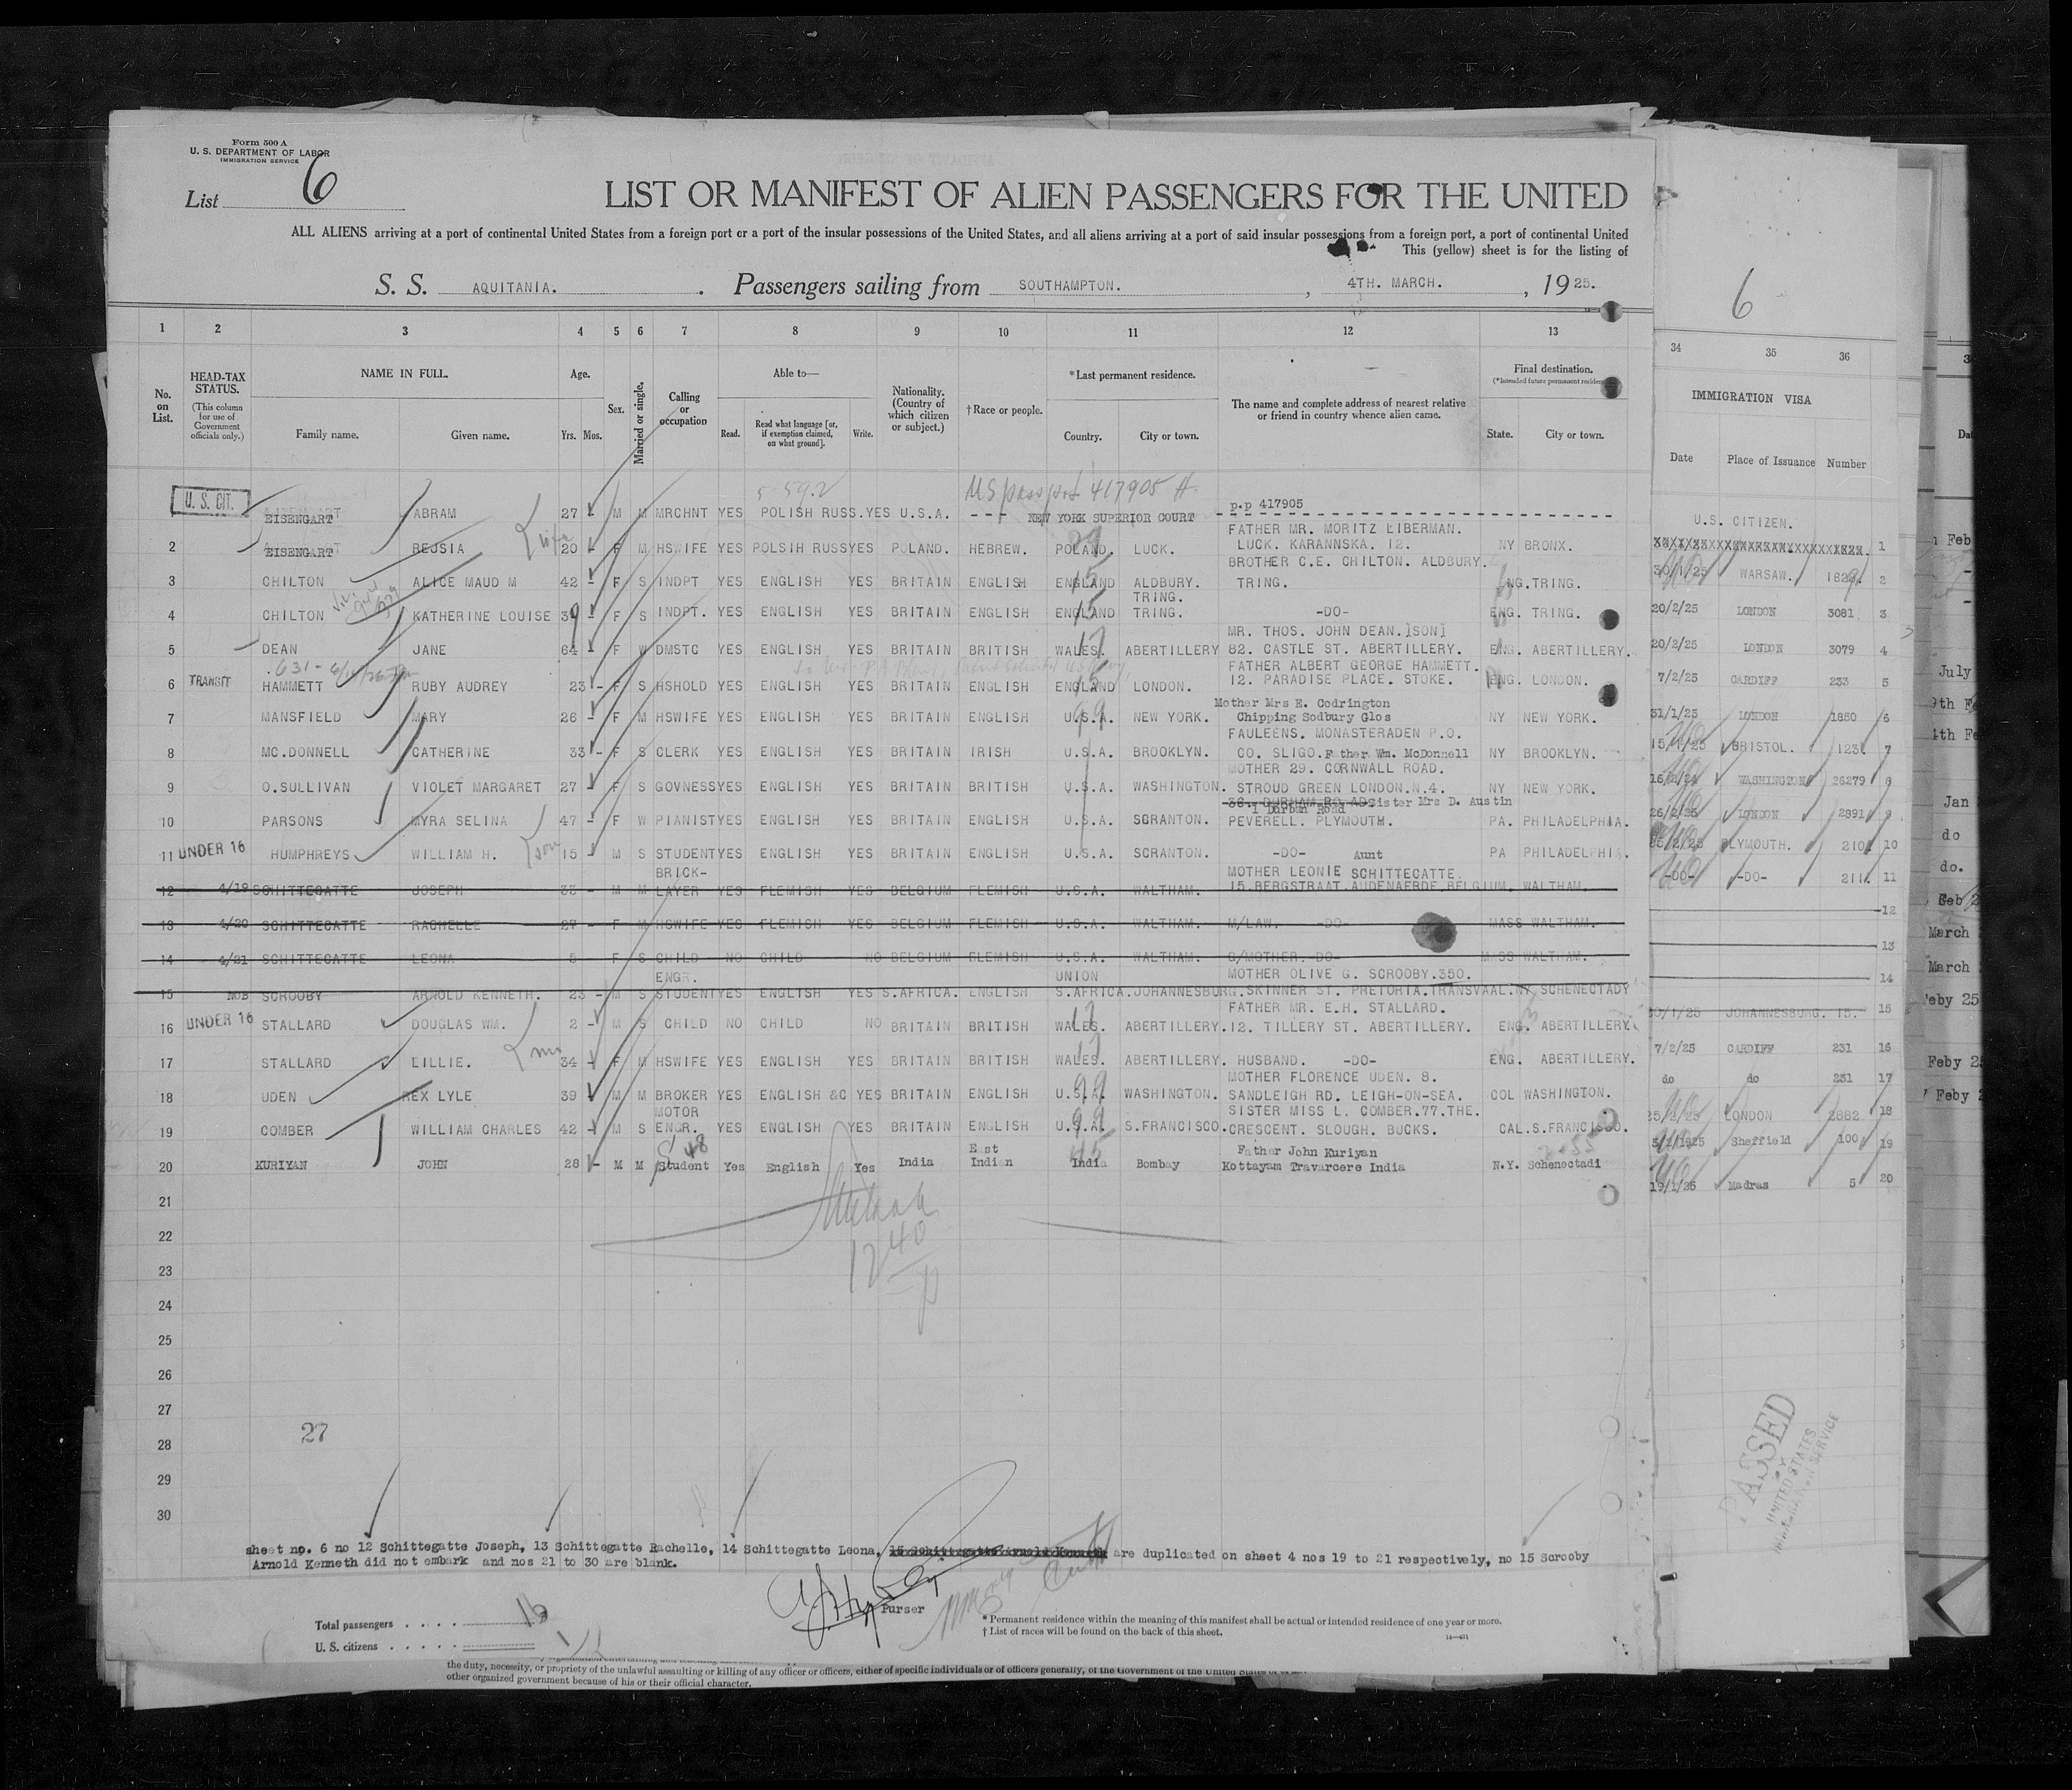 Form 500 A
U. S. DEPARTMENT OF LABOR
IMMIGRATION SERVICE
List 6
LIST OR MANIFEST OF ALIEN PASSENGERS FOR THE UNITED
ALL ALIENS arriving at a port of continental United States from a foreign port or a port of the insular possessions of the United States, and all aliens arriving at a port of said insular possessions from a foreign port, a port of continental United
This (yellow) sheet is for the listing of
S. S. AQUITANIA. Passengers sailing from SOUTHAMPTON. , 4TH. MARCH. , 1925.
6
1 2 3 4 5 6 7 8 9 10 11 12 13 34 35 36
No. on List.
HEAD-TAX STATUS. (This column for use of Government officials only.)
NAME IN FULL.
Family name. Given name.
Age. Yrs. Mos.
Sex.
Married or single.
Calling or occupation
Able to—
Read. Read what language [or, if exemption claimed, on what ground]. Write.
Nationality. (Country of which citizen or subject.)
†Race or people.
*Last permanent residence.
Country. City or town.
The name and complete address of nearest relative or friend in country whence alien came.
Final destination.
(*Intended future permanent residence)
State. City or town.
IMMIGRATION VISA
Date Place of Issuance Number
5-592 US passport 417905
p.p 417905
U. S. CIT. EISENGART ABRAM 27 - M M MRCHNT YES POLISH RUSS. YES U.S.A. --- NEW YORK SUPERIOR COURT
U.S. CITIZEN.
FATHER MR. MORITZ LIBERMAN.
2 EISENGART REJSIA wife 20 - F M HSWIFE YES POLSIH RUSS YES POLAND. HEBREW. POLAND. LUCK. LUCK. KARANNSKA. 12. NY BRONX. 1
BROTHER C.E. CHILTON. ALDBURY.
3 CHILTON ALICE MAUD M 42 - F S INDPT YES ENGLISH YES BRITAIN ENGLISH ENGLAND ALDBURY. TRING. TRING. ENG. TRING. 30/1/25 WARSAW. 2
4 CHILTON KATHERINE LOUISE 39 - F S INDPT. YES ENGLISH YES BRITAIN ENGLISH ENGLAND TRING. -DO- ENG. TRING. 20/2/25 LONDON 3081 3
MR. THOS. JOHN DEAN.]SON]
5 DEAN JANE 64 - F W DMSTC YES ENGLISH YES BRITAIN BRITISH WALES. ABERTILLERY 82. CASTLE ST. ABERTILLERY. ENG. ABERTILLERY. 20/2/25 LONDON 3079 4
FATHER ALBERT GEORGE HAMMETT.
6 TRANSIT HAMMETT RUBY AUDREY 23 - F S HSHOLD YES ENGLISH YES BRITAIN ENGLISH ENGLAND LONDON. 12. PARADISE PLACE. STOKE. ENG. LONDON. 7/2/25 CARDIFF 233 5
Mother Mrs E. Codrington
7 MANSFIELD MARY 26 - F M HSWIFE YES ENGLISH YES BRITAIN ENGLISH U.S.A. NEW YORK. Chipping Sodbury Glos NY NEW YORK. 31/1/25 LONDON 1850 6
FAULEENS. MONASTERADEN P.O.
8 MC.DONNELL CATHERINE 33 - F S CLERK YES ENGLISH YES BRITAIN IRISH U.S.A. BROOKLYN. CO. SLIGO. Father Wm. McDonnell NY BROOKLYN. 15/1/25 BRISTOL. 123 7
MOTHER 29. CORNWALL ROAD.
9 O.SULLIVAN VIOLET MARGARET 27 - F S GOVNESS YES ENGLISH YES BRITAIN BRITISH U.S.A. WASHINGTON. STROUD GREEN LONDON.N.4. NY NEW YORK. WASHINGTON 26279 8
36. DURHAM RD AD Sister Mrs D. Austin
1 Durban Road
10 PARSONS MYRA SELINA 47 - F W PIANIST YES ENGLISH YES BRITAIN ENGLISH U.S.A. SCRANTON. PEVERELL. PLYMOUTH. PA. PHILADELPHIA. 26/2/25 LONDON 2891 9
11 UNDER 16 HUMPHREYS WILLIAM H. son 15 - M S STUDENT YES ENGLISH YES BRITAIN ENGLISH U.S.A. SCRANTON. -DO- Aunt PA PHILADELPHIA. PLYMOUTH. 210 10
BRICK- MOTHER LEONIE SCHITTECATTE.
12 4/19 SCHITTEGATTE JOSEPH 33 - M M LAYER YES FLEMISH YES BELGIUM FLEMISH U.S.A. WALTHAM. 15.BERGSTRAAT.AUDENAERDE.BELGIUM. WALTHAM. -DO- -DO- 211. 11
13 4/20 SCHITTEGATTE RACHELLE 27 - F M HSWIFE YES FLEMISH YES BELGIUM FLEMISH U.S.A. WALTHAM. M/LAW. -DO- MASS WALTHAM. 12
14 4/21 SCHITTEGATTE LEONA 5 F S CHILD NO CHILD NO BELGIUM FLEMISH U.S.A. WALTHAM. G/MOTHER. DO- MASS WALTHAM. 13
ENGR. UNION MOTHER OLIVE G. SCROOBY.350. 14
15 NOB SCROOBY ARNOLD KENNETH. 23 - M S STUDENT YES ENGLISH YES S.AFRICA. ENGLISH S.AFRICA. JOHANNESBURG. SKINNER ST. PRETORIA.TRANSVAAL. NY SCHENECTADY 30/1/25 JOHANNESBURG. 15. 15
FATHER MR. E.H. STALLARD.
16 UNDER 16 STALLARD DOUGLAS WM. 2 - M S CHILD NO CHILD NO BRITAIN BRITISH WALES. ABERTILLERY. 12. TILLERY ST. ABERTILLERY. ENG. ABERTILLERY. 7/2/25 CARDIFF 231 16
17 STALLARD LILLIE. 34 - F M HSWIFE YES ENGLISH YES BRITAIN BRITISH WALES. ABERTILLERY. HUSBAND. -DO- ENG. ABERTILLERY. do do 231 17
MOTHER FLORENCE UDEN. 8.
18 UDEN REX LYLE 39 M M BROKER YES ENGLISH &C YES BRITAIN ENGLISH U.S.A. WASHINGTON. SANDLEIGH RD. LEIGH-ON-SEA. COL WASHINGTON. 25/2/25 LONDON 2882 18
MOTOR SISTER MISS L. COMBER.77.THE.
19 COMBER WILLIAM CHARLES 42 - M S ENGR. YES ENGLISH YES BRITAIN ENGLISH U.S.A. S.FRANCISCO. CRESCENT. SLOUGH. BUCKS. CAL. S.FRANCISCO. Sheffield 100 19
East Father John Kuriyan
20 KURIYAN JOHN 28 - M M Student Yes English Yes India Indian India Bombay Kottayam Travarcere India N.Y. Schenectadi 19/1/25 Madras 5 20
21
22
23
24
25
26
27
28
27
29
30
PASSED
BY
UNITED STATES
IMMIGRATION SERVICE
sheet no. 6 no 12 Schittegatte Joseph, 13 Schittegatte Rachelle, 14 Schittegatte Leona, 15 Schittegatte Arnold Kenneth are duplicated on sheet 4 nos 19 to 21 respectively, no 15 Scrooby
Arnold Kenneth did not embark and nos 21 to 30 are blank.
Purser
Total passengers . . . . 16
U. S. citizens . . . . . 1
* Permanent residence within the meaning of this manifest shall be actual or intended residence of one year or more.
† List of races will be found on the back of this sheet.
14—431
the duty, necessity, or propriety of the unlawful assaulting or killing of any officer or officers, either of specific individuals or of officers generally, of the Government of the United States or
other organized government because of his or their official character.
Feb
July
Jan
do
do.
Feb
March
March
Feby 25
Feby
Feby